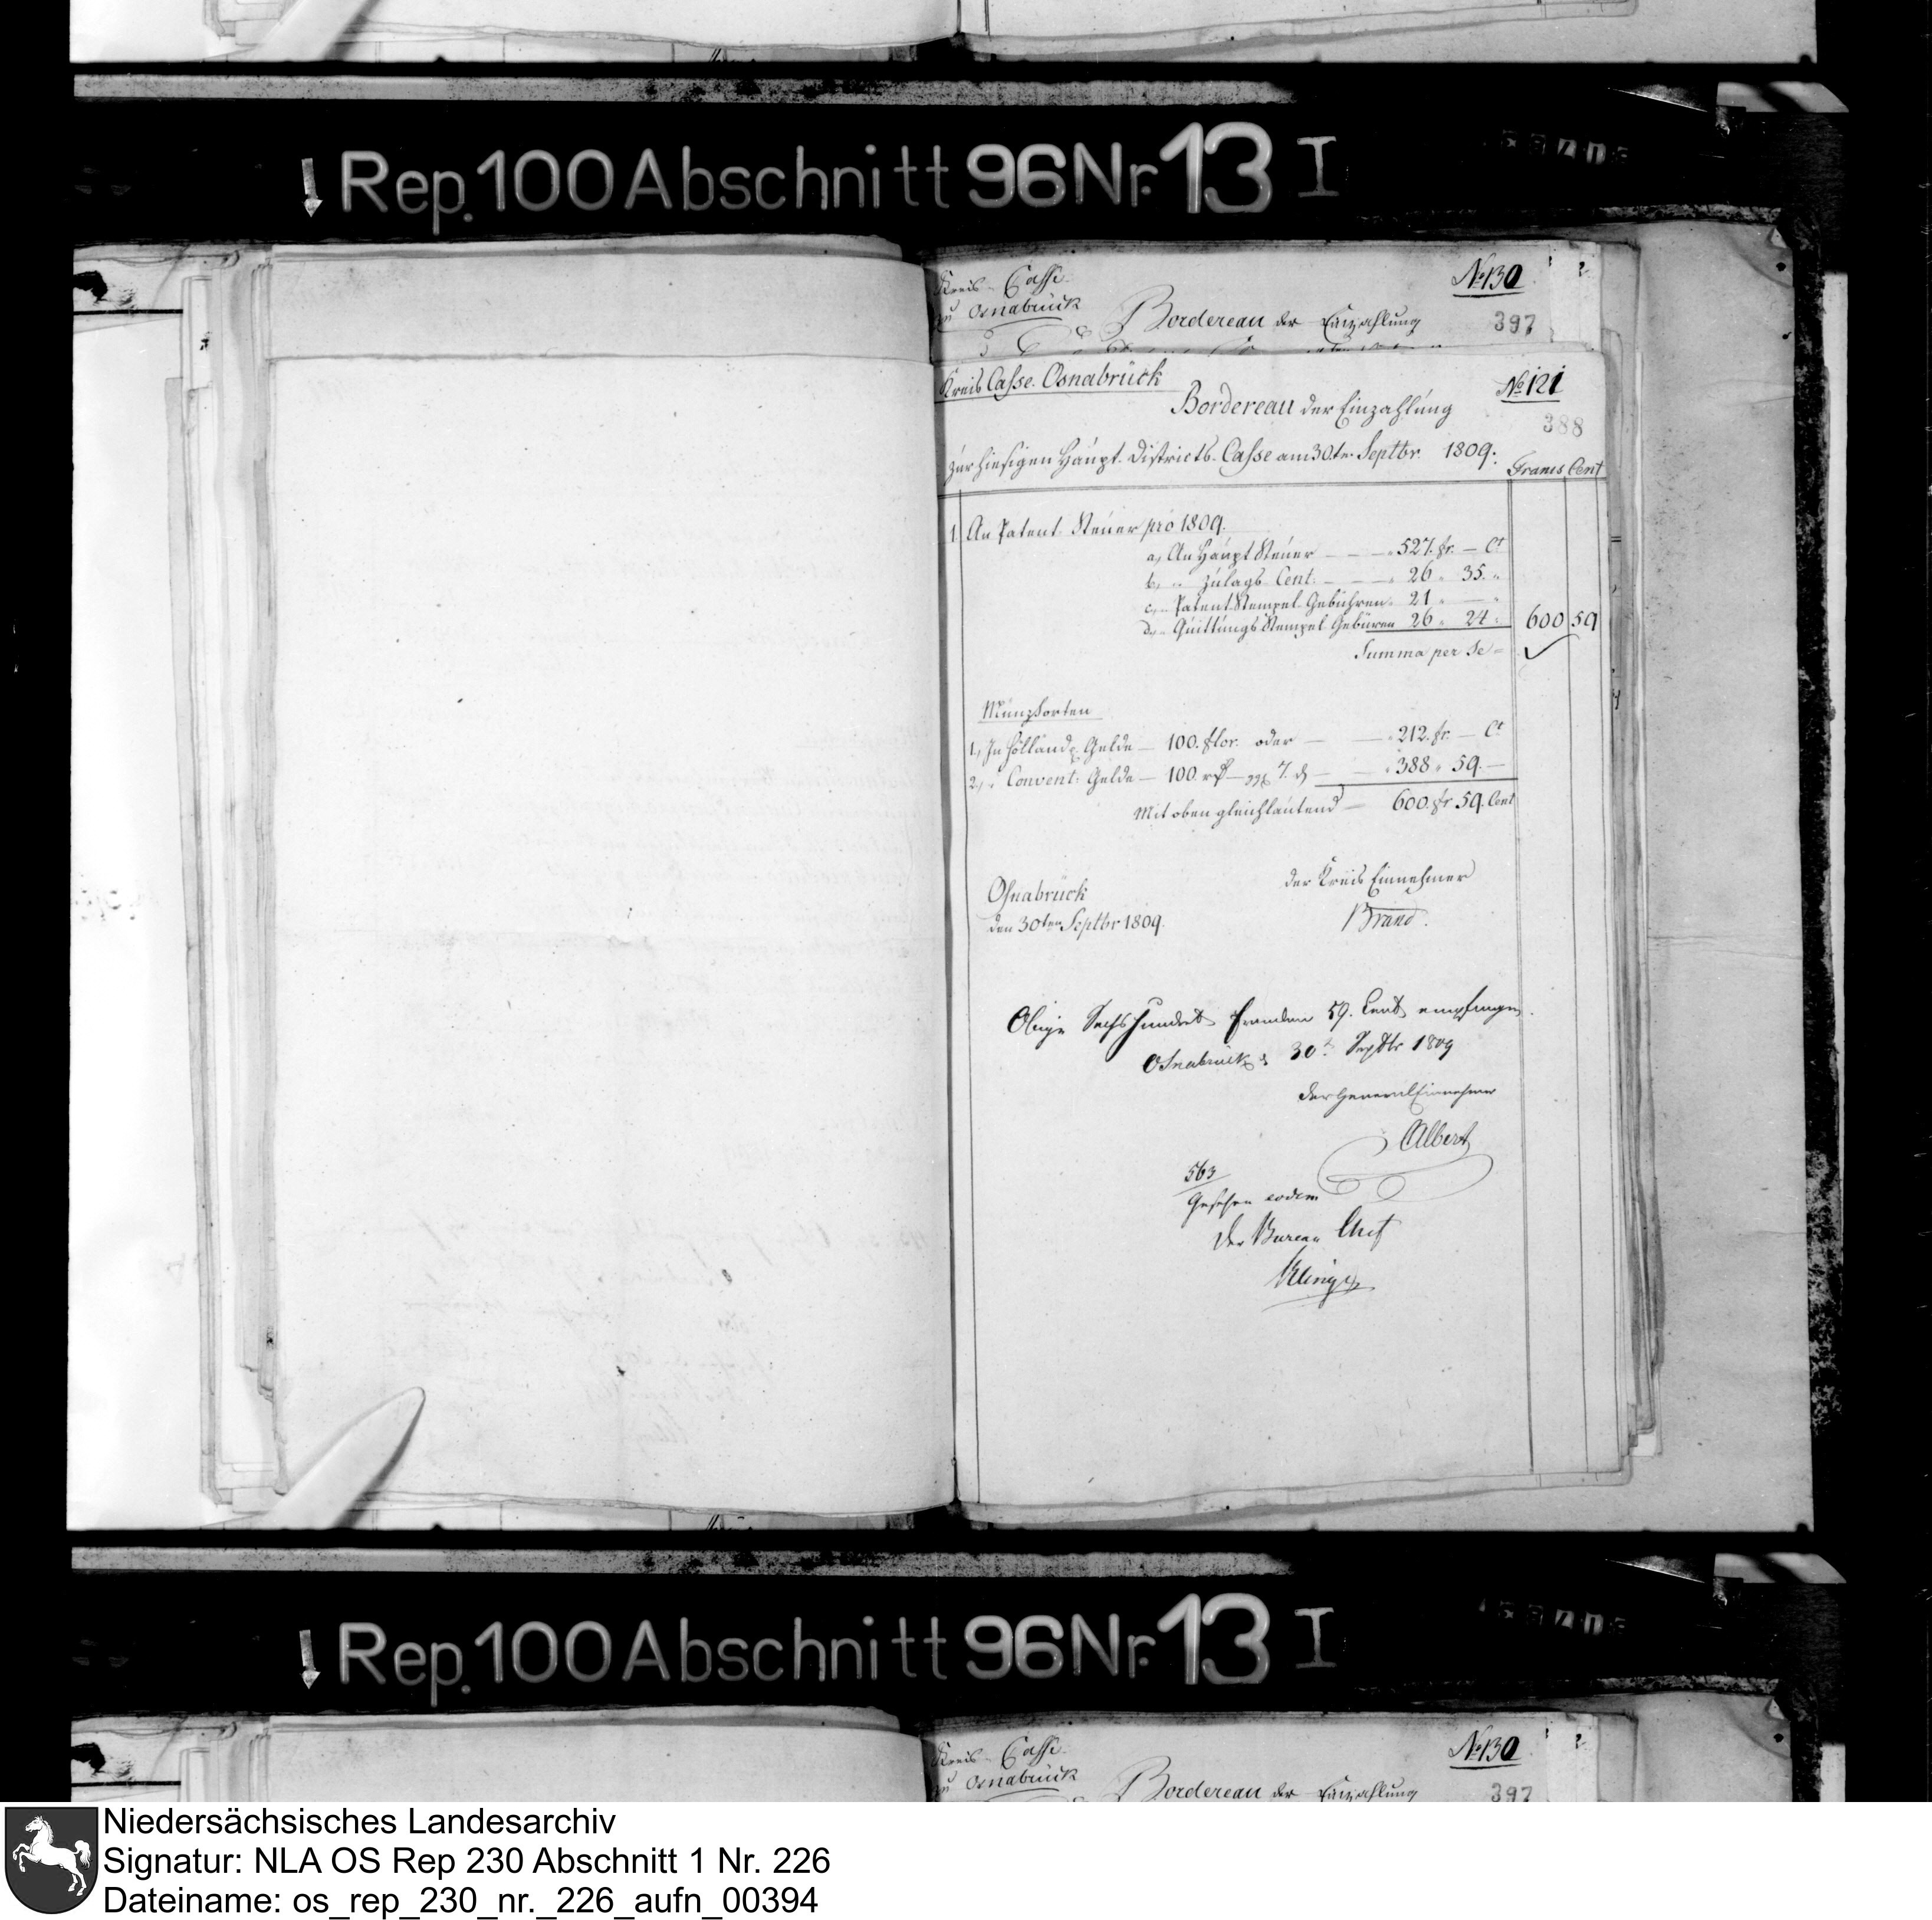 Rep. 100 Abschnitt 96 Nr. 13 I
Kreis-Casse
zu Osnabrück
No 130
Bordereau der Einzahlung
397
Kreis Casse Osnabrück
No 121
Bordereau der Einzahlung
388
zur hiesigen Haupt-Districts-Casse am 30ten Septbr. 1809.
Francs Cent
1 An Patent Steuer pro 1809.
a, An Haupt Steuer — — 527. fr. — Ct
b, " Zulags-Cent. — — 26 " 35. "
c, " Patent Stempel-Gebühren. 21 " — "
d, " Quittungs Stempel Gebüren 26 " 24 " 600 59
Summa per Se =
Münzsorten
1, In Holländ. Gelde — 100. flor. oder — — 212. fr. — Ct
2, " Convent: Gelde — 100. — — 388 " 59. —
Mit oben gleichlautend — 600. fr 59. Cent
der Kreis Einnehmer
Osnabrück
den 30ten Septbr 1809.
Brand.
Obige Sechshundert Franken 59. Cent empfangen.
Osnabrück d 30t Septbr 1809
der General Einnehmer
Albert
563
Gesehen eodem
Der Bureau Chef
Rep. 100 Abschnitt 96 Nr. 13 I
Kreis-Casse
zu Osnabrück
No 130
Bordereau der Einzahlung
397
Niedersächsisches Landesarchiv
Signatur: NLA OS Rep 230 Abschnitt 1 Nr. 226
Dateiname: os_rep_230_nr._226_aufn_00394